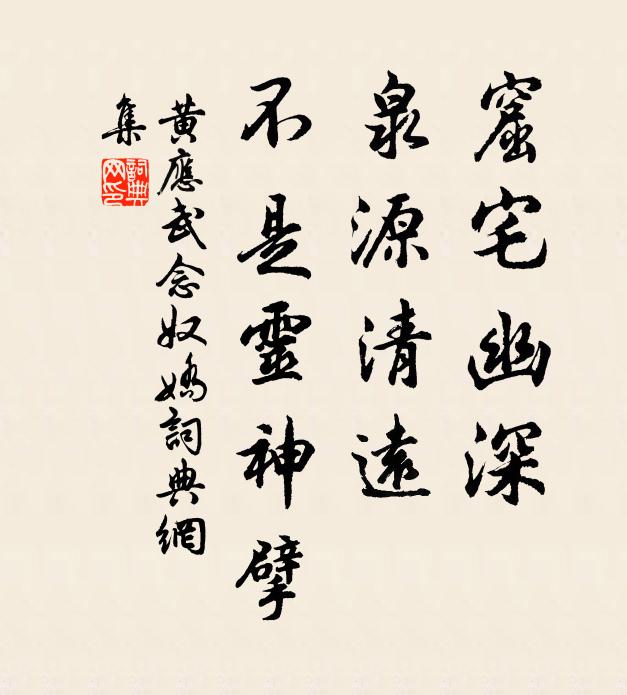 窟宅幽深
泉源清遠
不是靈神擘
黄應武念奴嬌詞典網
集
詞典
网印